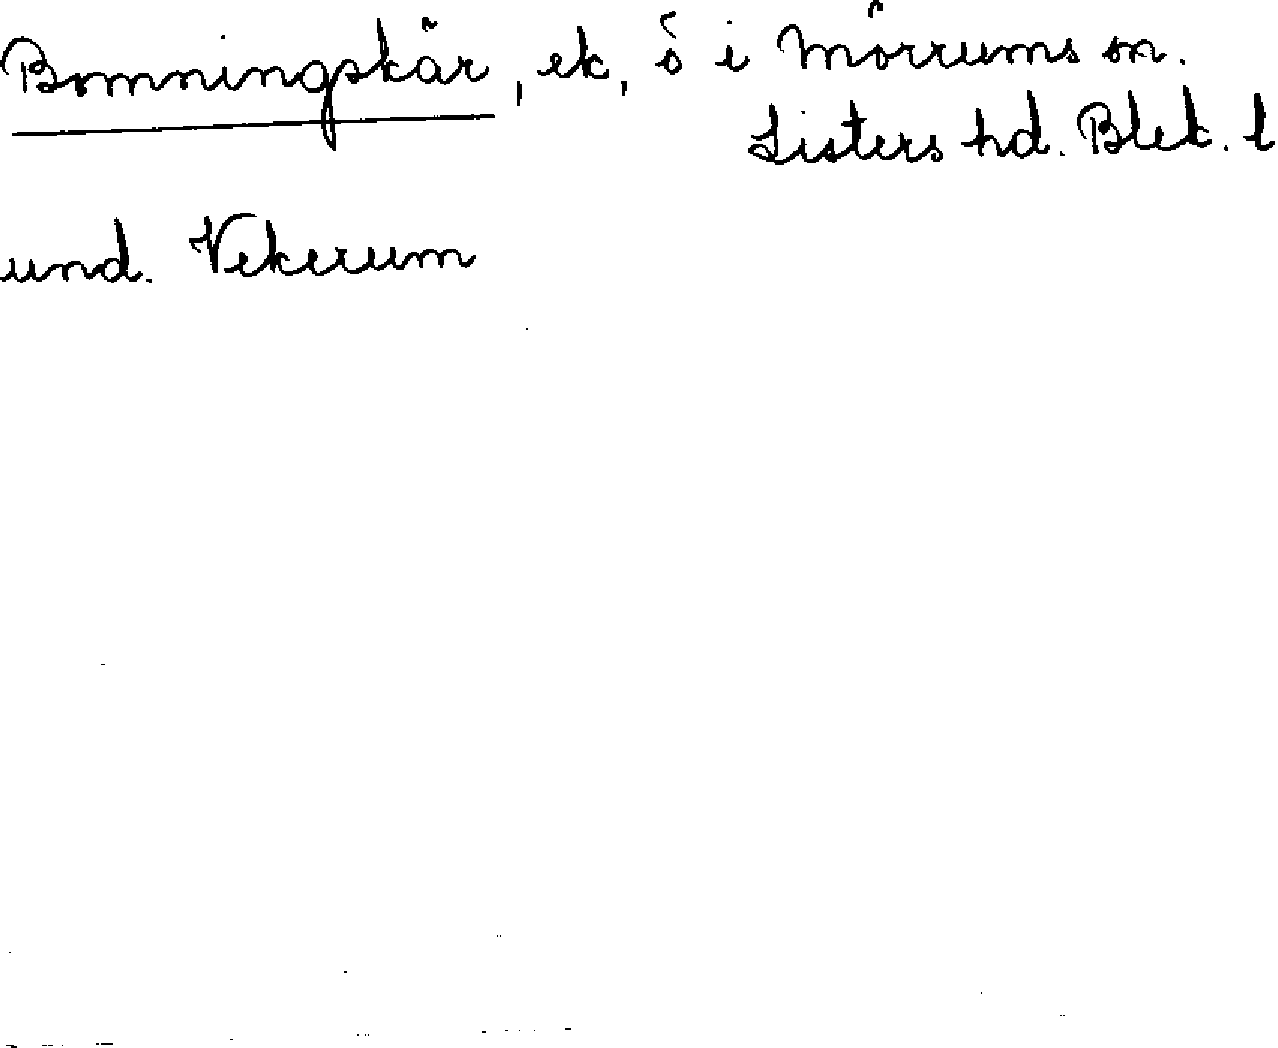 Bomningskär, ek, ö i Mörrums sn.
Listers hd. Blek. l
und. Vekerum